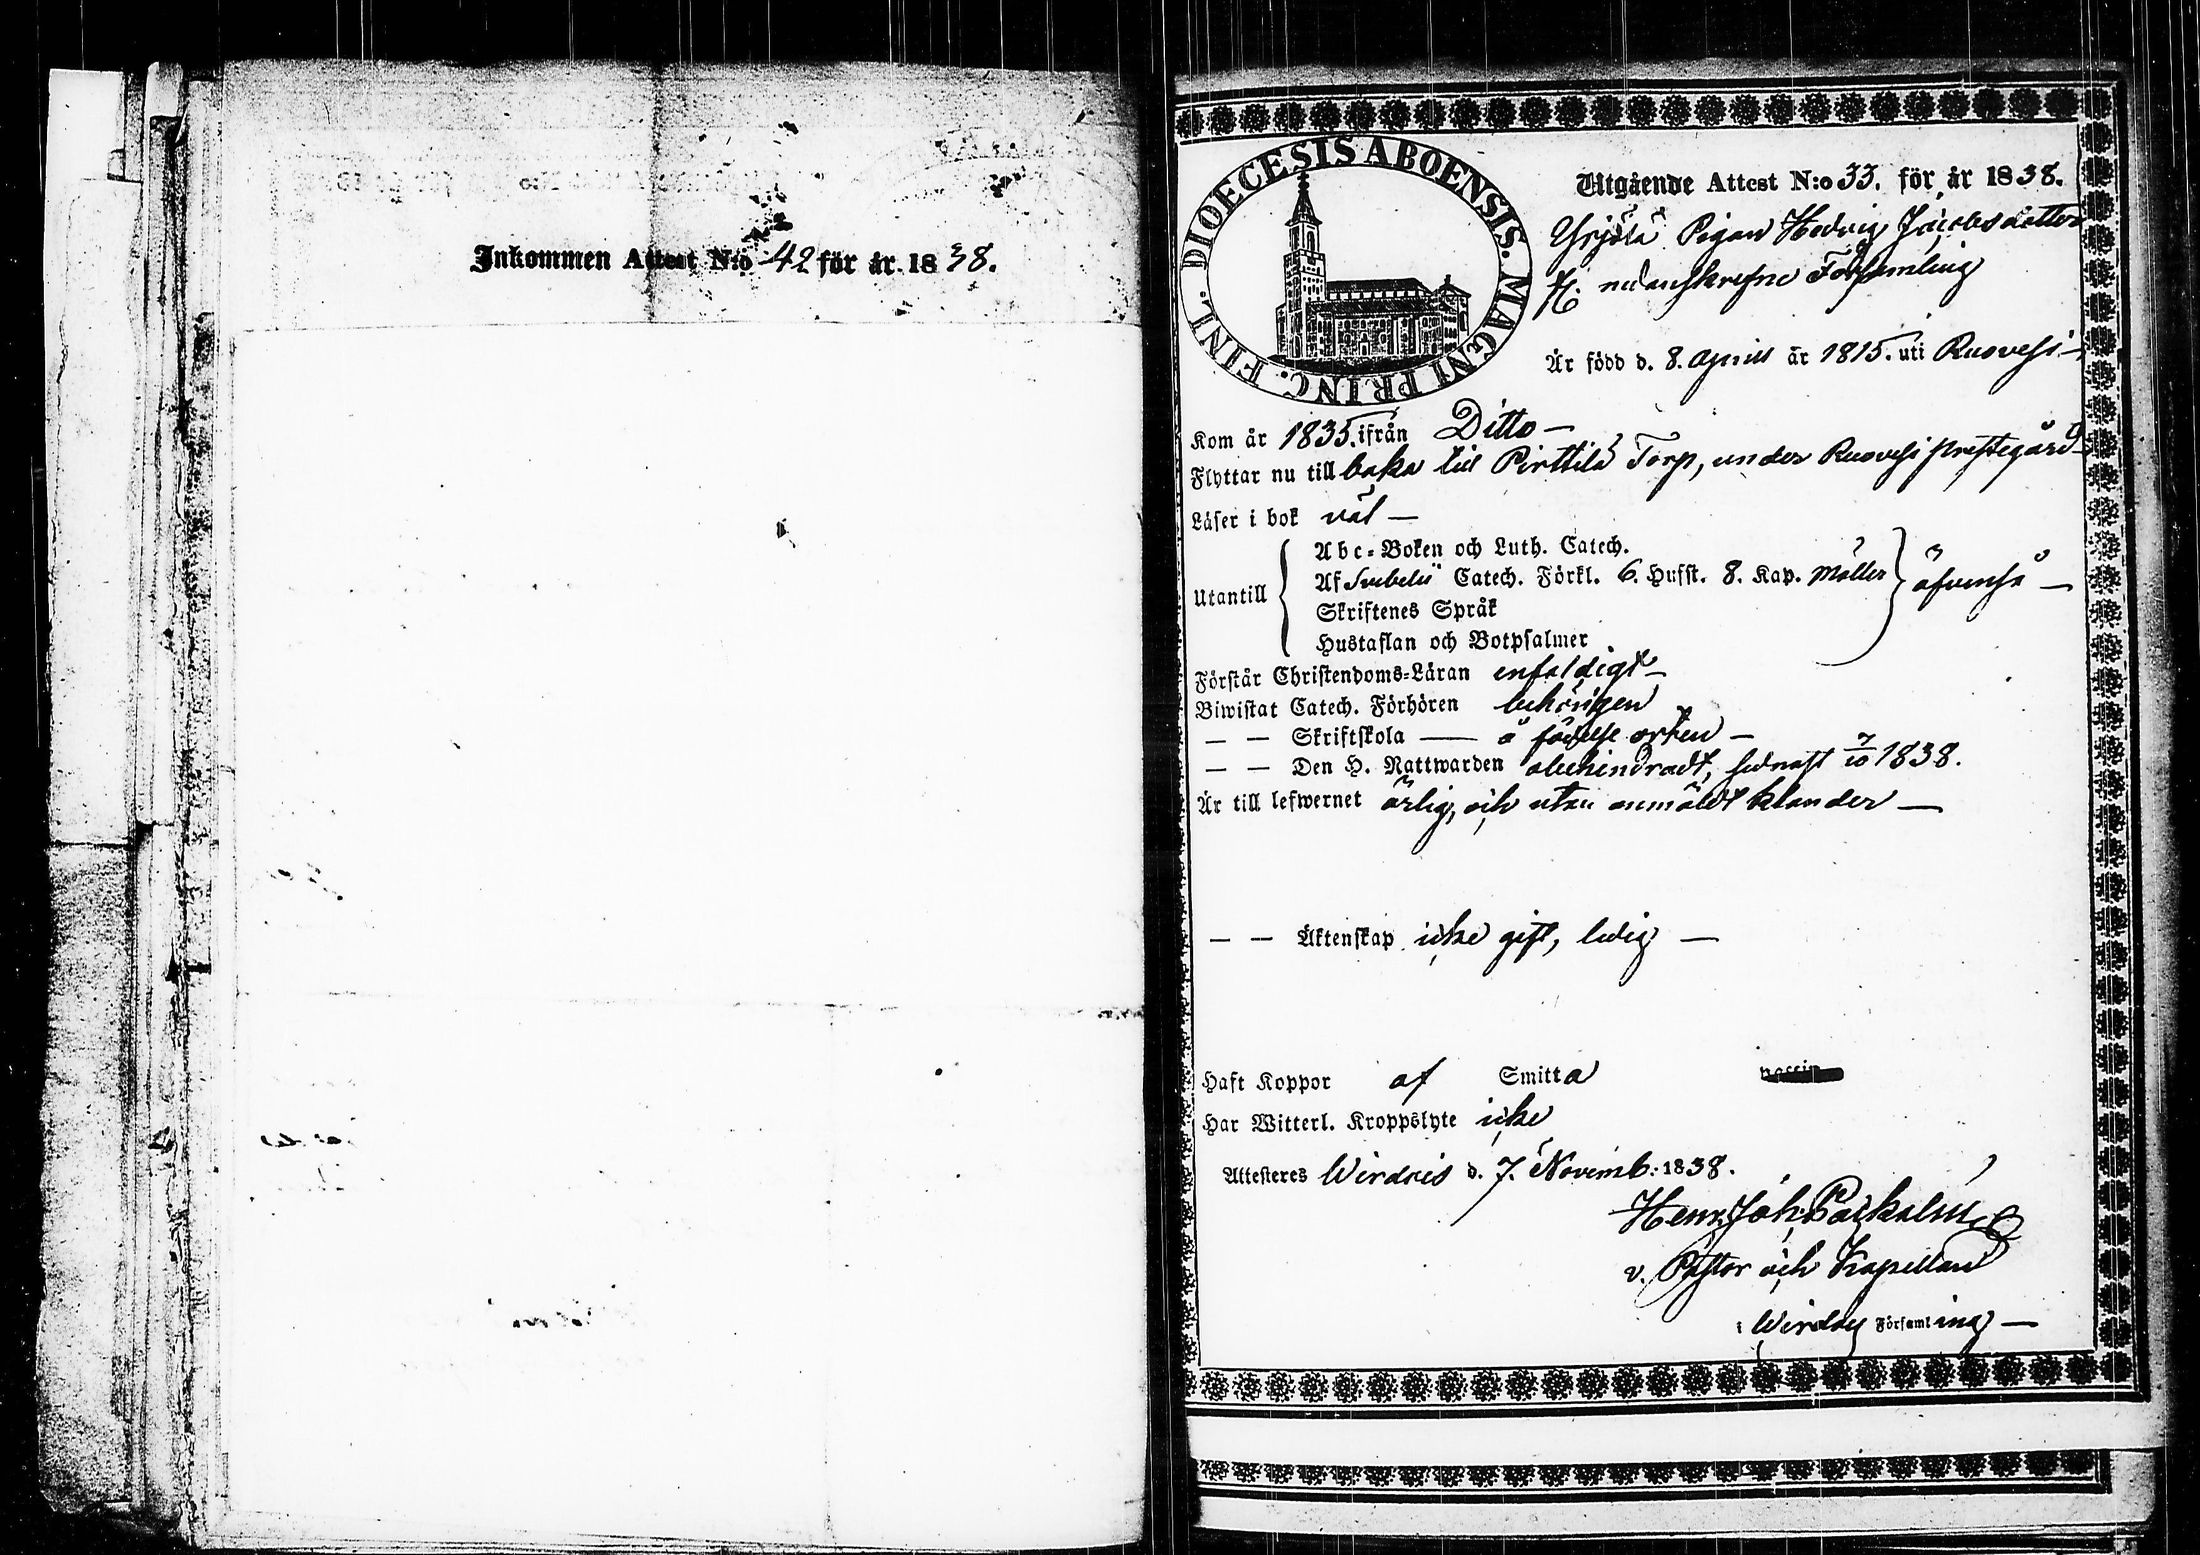 Inkommen Attest N:o 42 för år 1838.
DIOECESIS ABOENSIS. MAGNI PRINC. FINL.
Utgående Attest N:o 33. för år 1838.
Yrjölä Pigan Hedvig Jacobsdotter
nedanskrefne Församling
Är född d. 8. Aprill år 1815. uti Ruovesi —
Kom år 1835. ifrån Ditto —
Flyttar nu till baka till Pirttilä Torp, under Ruovesi prestegård —
Läser i bok väl —
Utantill
Abc-Boken och Luth. Catech.
Af Svebelii Catech. Förkl. 6. Hufst. 8. Kap. Möller
Skriftenes Språk
Hustaflan och Botpsalmer
äfvenså —
Förstår Christendoms-Läran enfaldigt —
Biwistat Catech. Förhören behörigen
— — Skriftskola — å födelse orten —
— — Den H. Nattwarden obehindradt, sednast 7/10 1838.
Är till lefwernet ärlig, och utan anmäldt klander —
— — Äktenskap icke gift, ledig —
Haft Koppor af Smitta
Har Witterl. Kroppslyte icke
Attesteres Wirdois d. 7. Novemb: 1838.
Henr. Joh.
v. Pastor och Kapellan
i Wirdoy Församling —